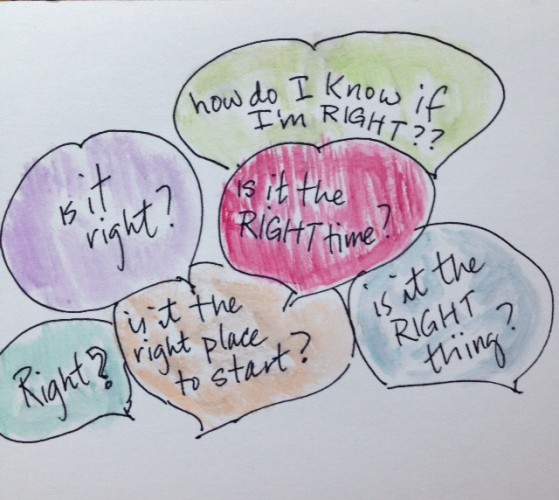 how do I know if
I'm RIGHT??
is it
right?
is it the
RIGHT time?
is it the
right place
to start?
is it the
RIGHT
thing?
Right?